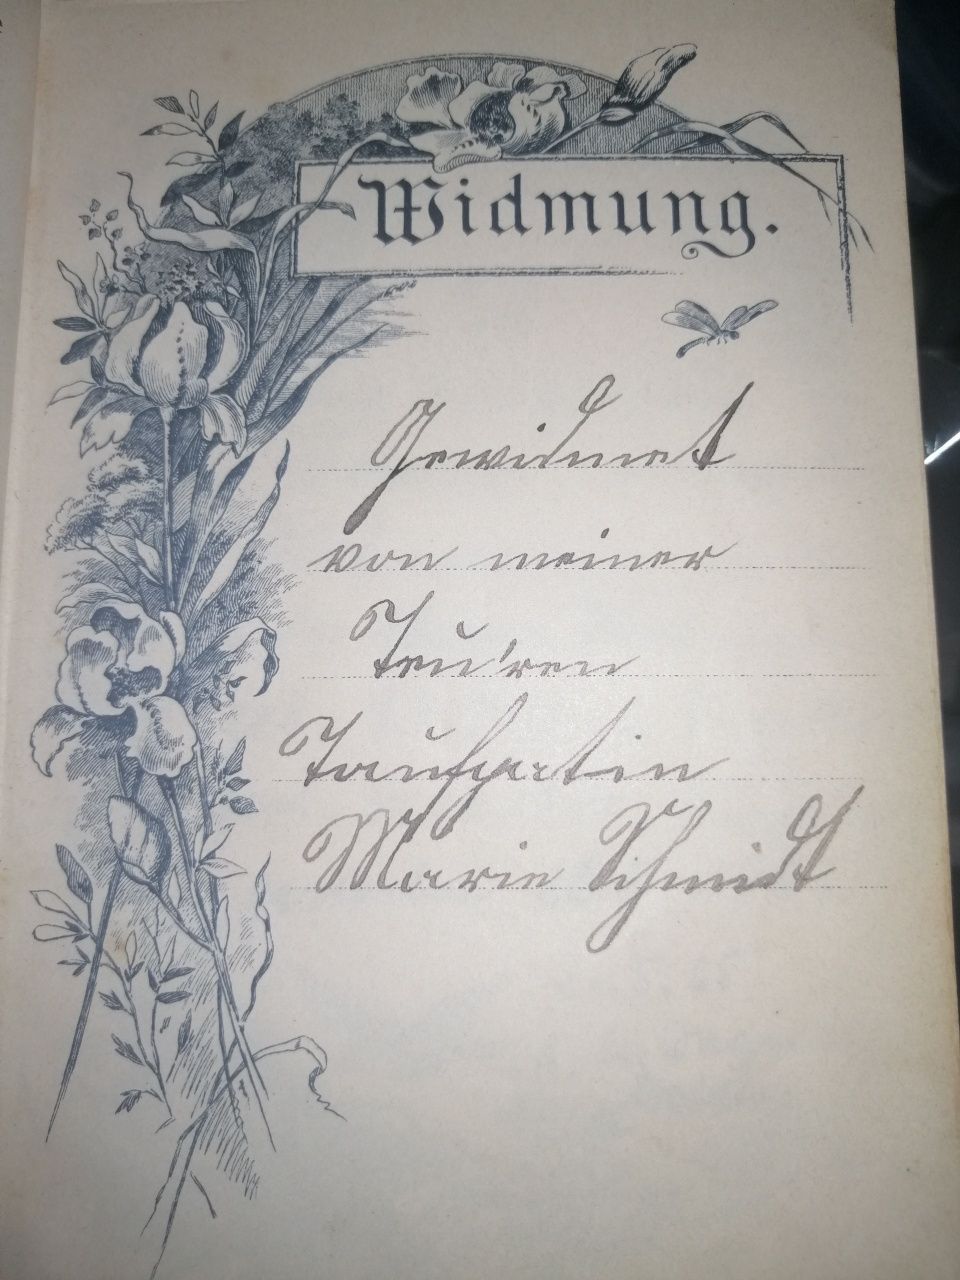 Widmung.
Gewidmet
von meiner
Teu'ren
Taufpatin
Marie Schmidt